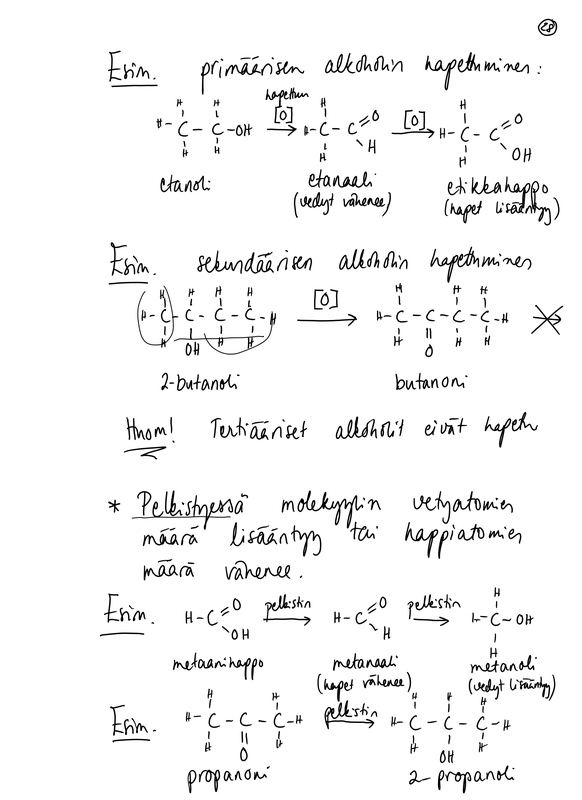 28
Esim. primäärisen alkoholin hapettuminen:
hapettuu
[O] [O]
H H H H
H-C-C-OH → H-C-C=O H → H-C-C=O OH
H H H H
etanoli etanaali etikkahappo
(vedyt vähenee) (hapet lisääntyy)
Esim. sekundäärisen alkoholin hapettuminen
H H H H [O] H H H
H-C-C-C-C-H → H-C-C-C-C-H →
H OH H H H O H H
2-butanoli butanoni
Huom! Tertiääriset alkoholit eivät hapetu
* Pelkistyessä molekyylin vetyatomien
määrä lisääntyy tai happiatomien
määrä vähenee.
Esim. H-C=O OH pelkistin → H-C=O H pelkistin → H-C-OH
H H
metaanihappo metanaali metanoli
(hapet vähenee) (vedyt lisääntyy)
Esim. H H H H H
H-C-C-C-H pelkistin → H-C-C-C-H
H O H H OH H
propanoni 2-propanoli